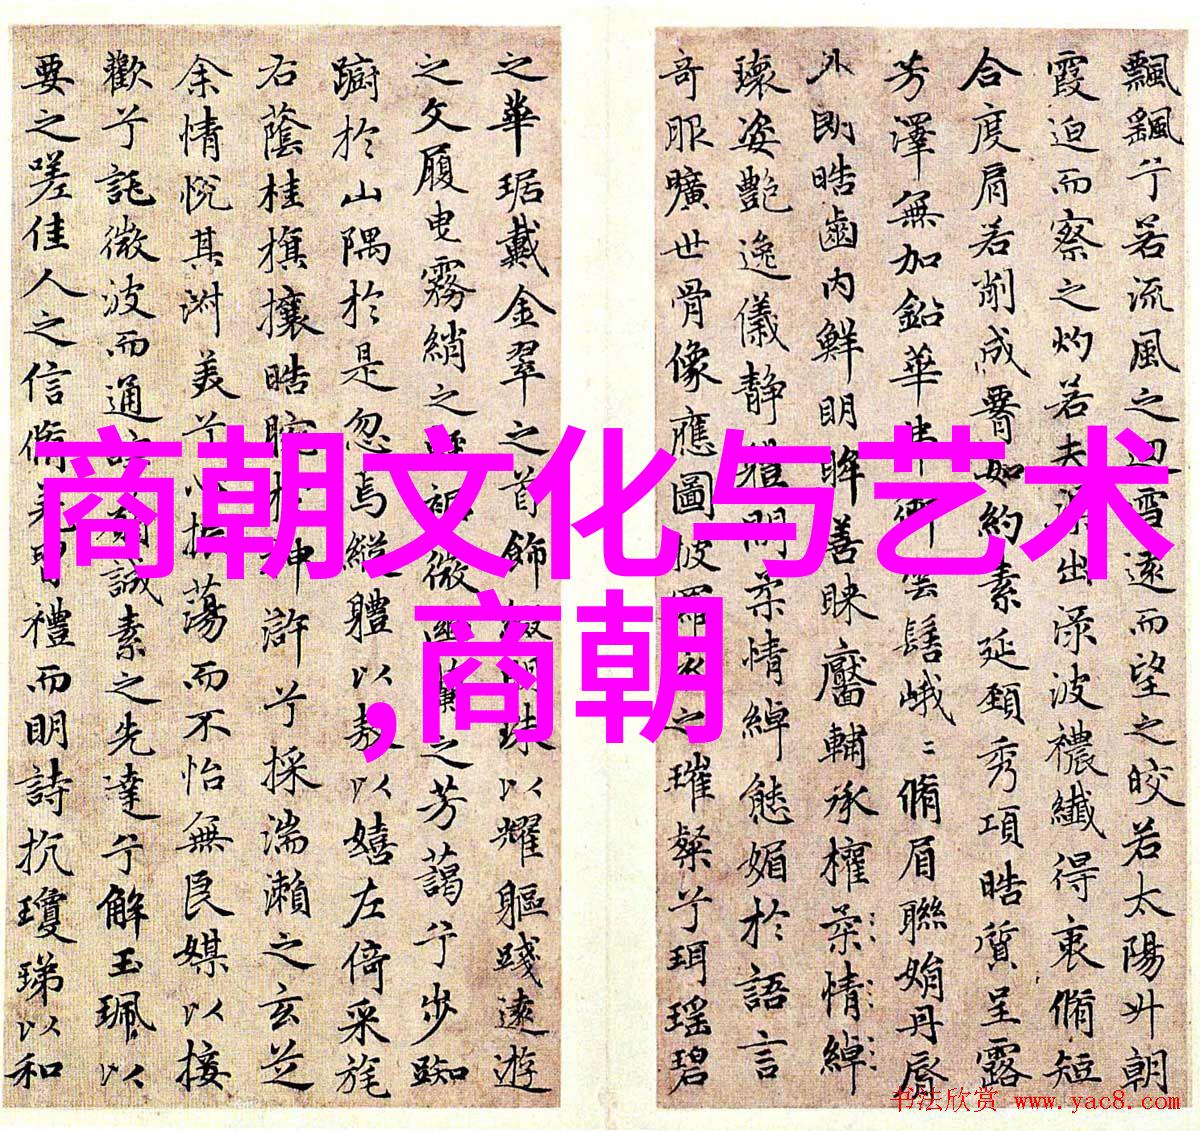 飄颻兮若流風之迴雪遠而望之皎若太陽升朝
霞迫而察之灼若夫出渌波禯纖得衷脩短
合度肩若削成腰如約素延頸秀項皓質呈露
芳澤無加鉛華弗御雲髻峨〻脩眉聯娟丹唇
外朗皓齒内鮮明眸善睞靨輔承權柔情綽
瓌姿艷逸儀静體閒柔情綽態媚於語言
奇服曠世骨像應圖披羅衣之璀粲兮珥瑤碧
之華琚戴金翠之首飾綴明珠以耀軀踐遠遊
之文履曳霧綃之輕裾微幽之芳藹兮步踟
蹰於山隅於是忽焉縱軆以敖以嬉左倚采旄
右蔭桂旗攘皓腕於神滸兮採湍瀨之玄芝
余情悦其淑美兮心振蕩而不怡無良媒以接
歡兮託微波而通誠素之先達兮解玉珮以
要之嗟佳人之信脩羌習禮而明詩抗瓊珶以和
商朝文化与艺术
,商朝
书法欣赏 www.yac8.com